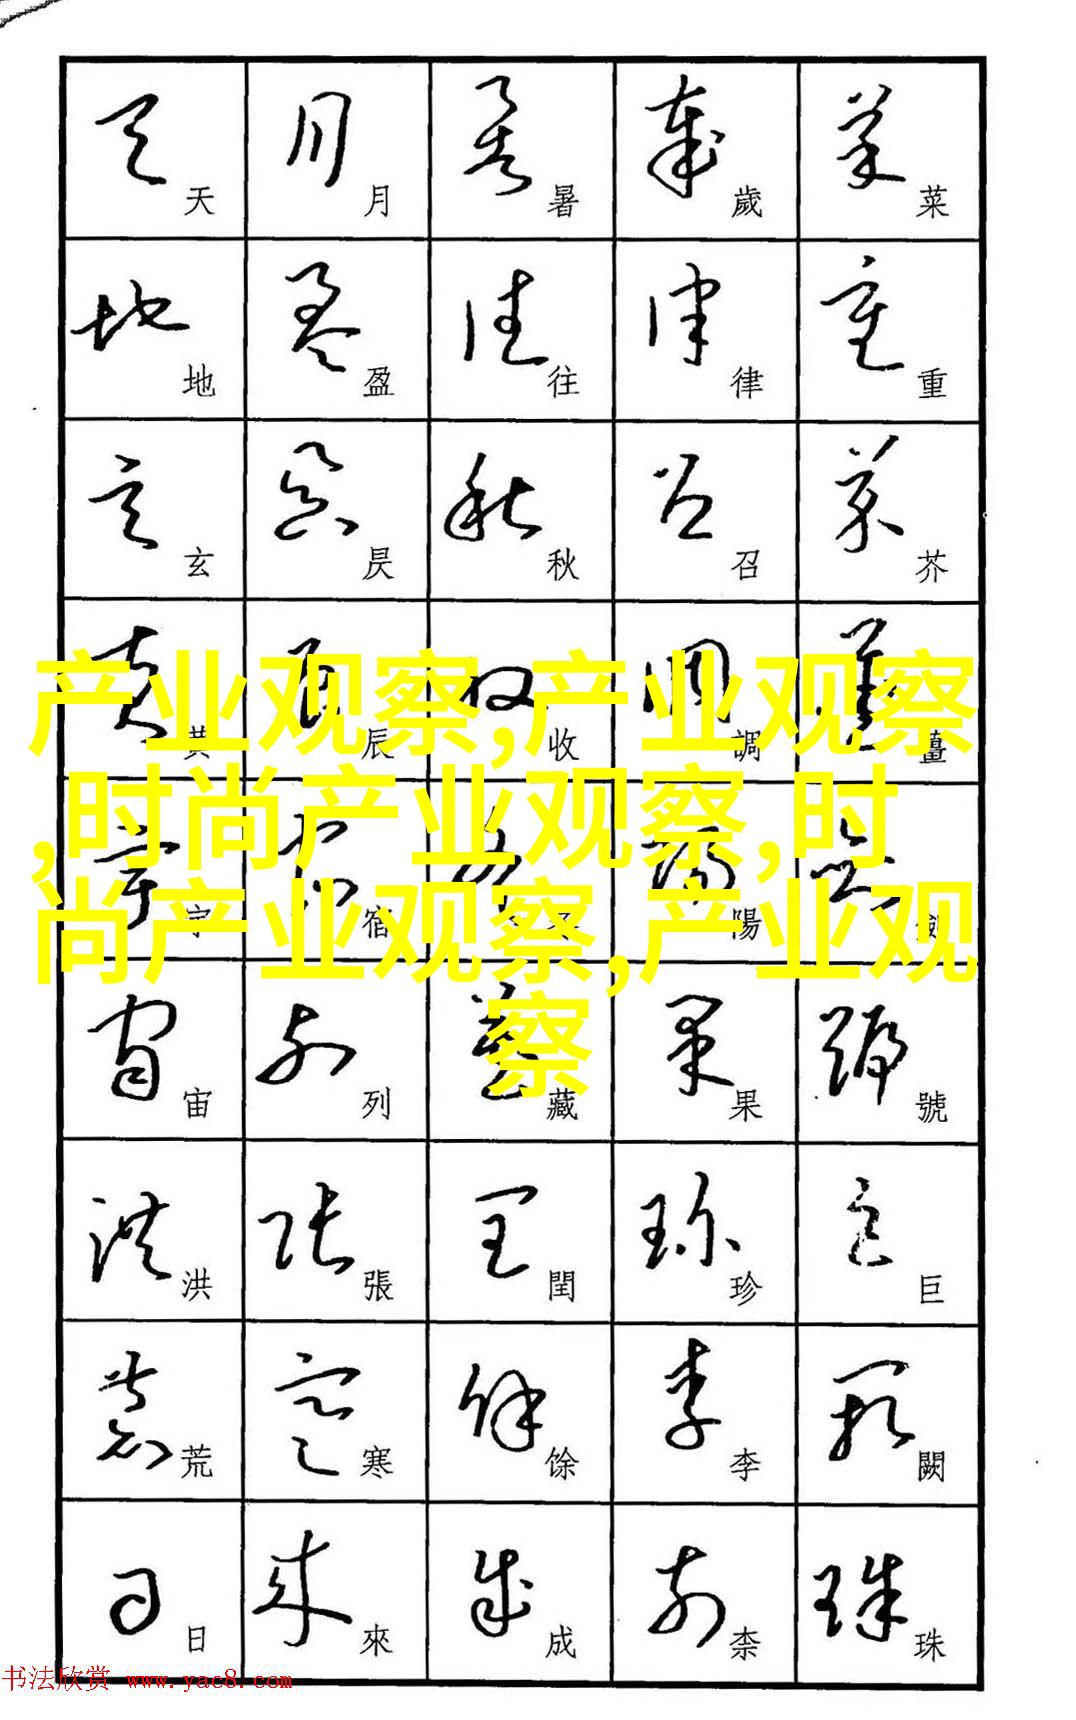 天地玄黄宇宙洪荒日
月盈昃辰宿列張寒來
暑往秋收冬藏閏馀成
歲律召調陽果珍李柰
菜重芥薑劍號巨闕珠
产业观察,产业观察
,时尚产业观察,时
尚产业观察,产业观
察
书法欣赏 www.yac8.com